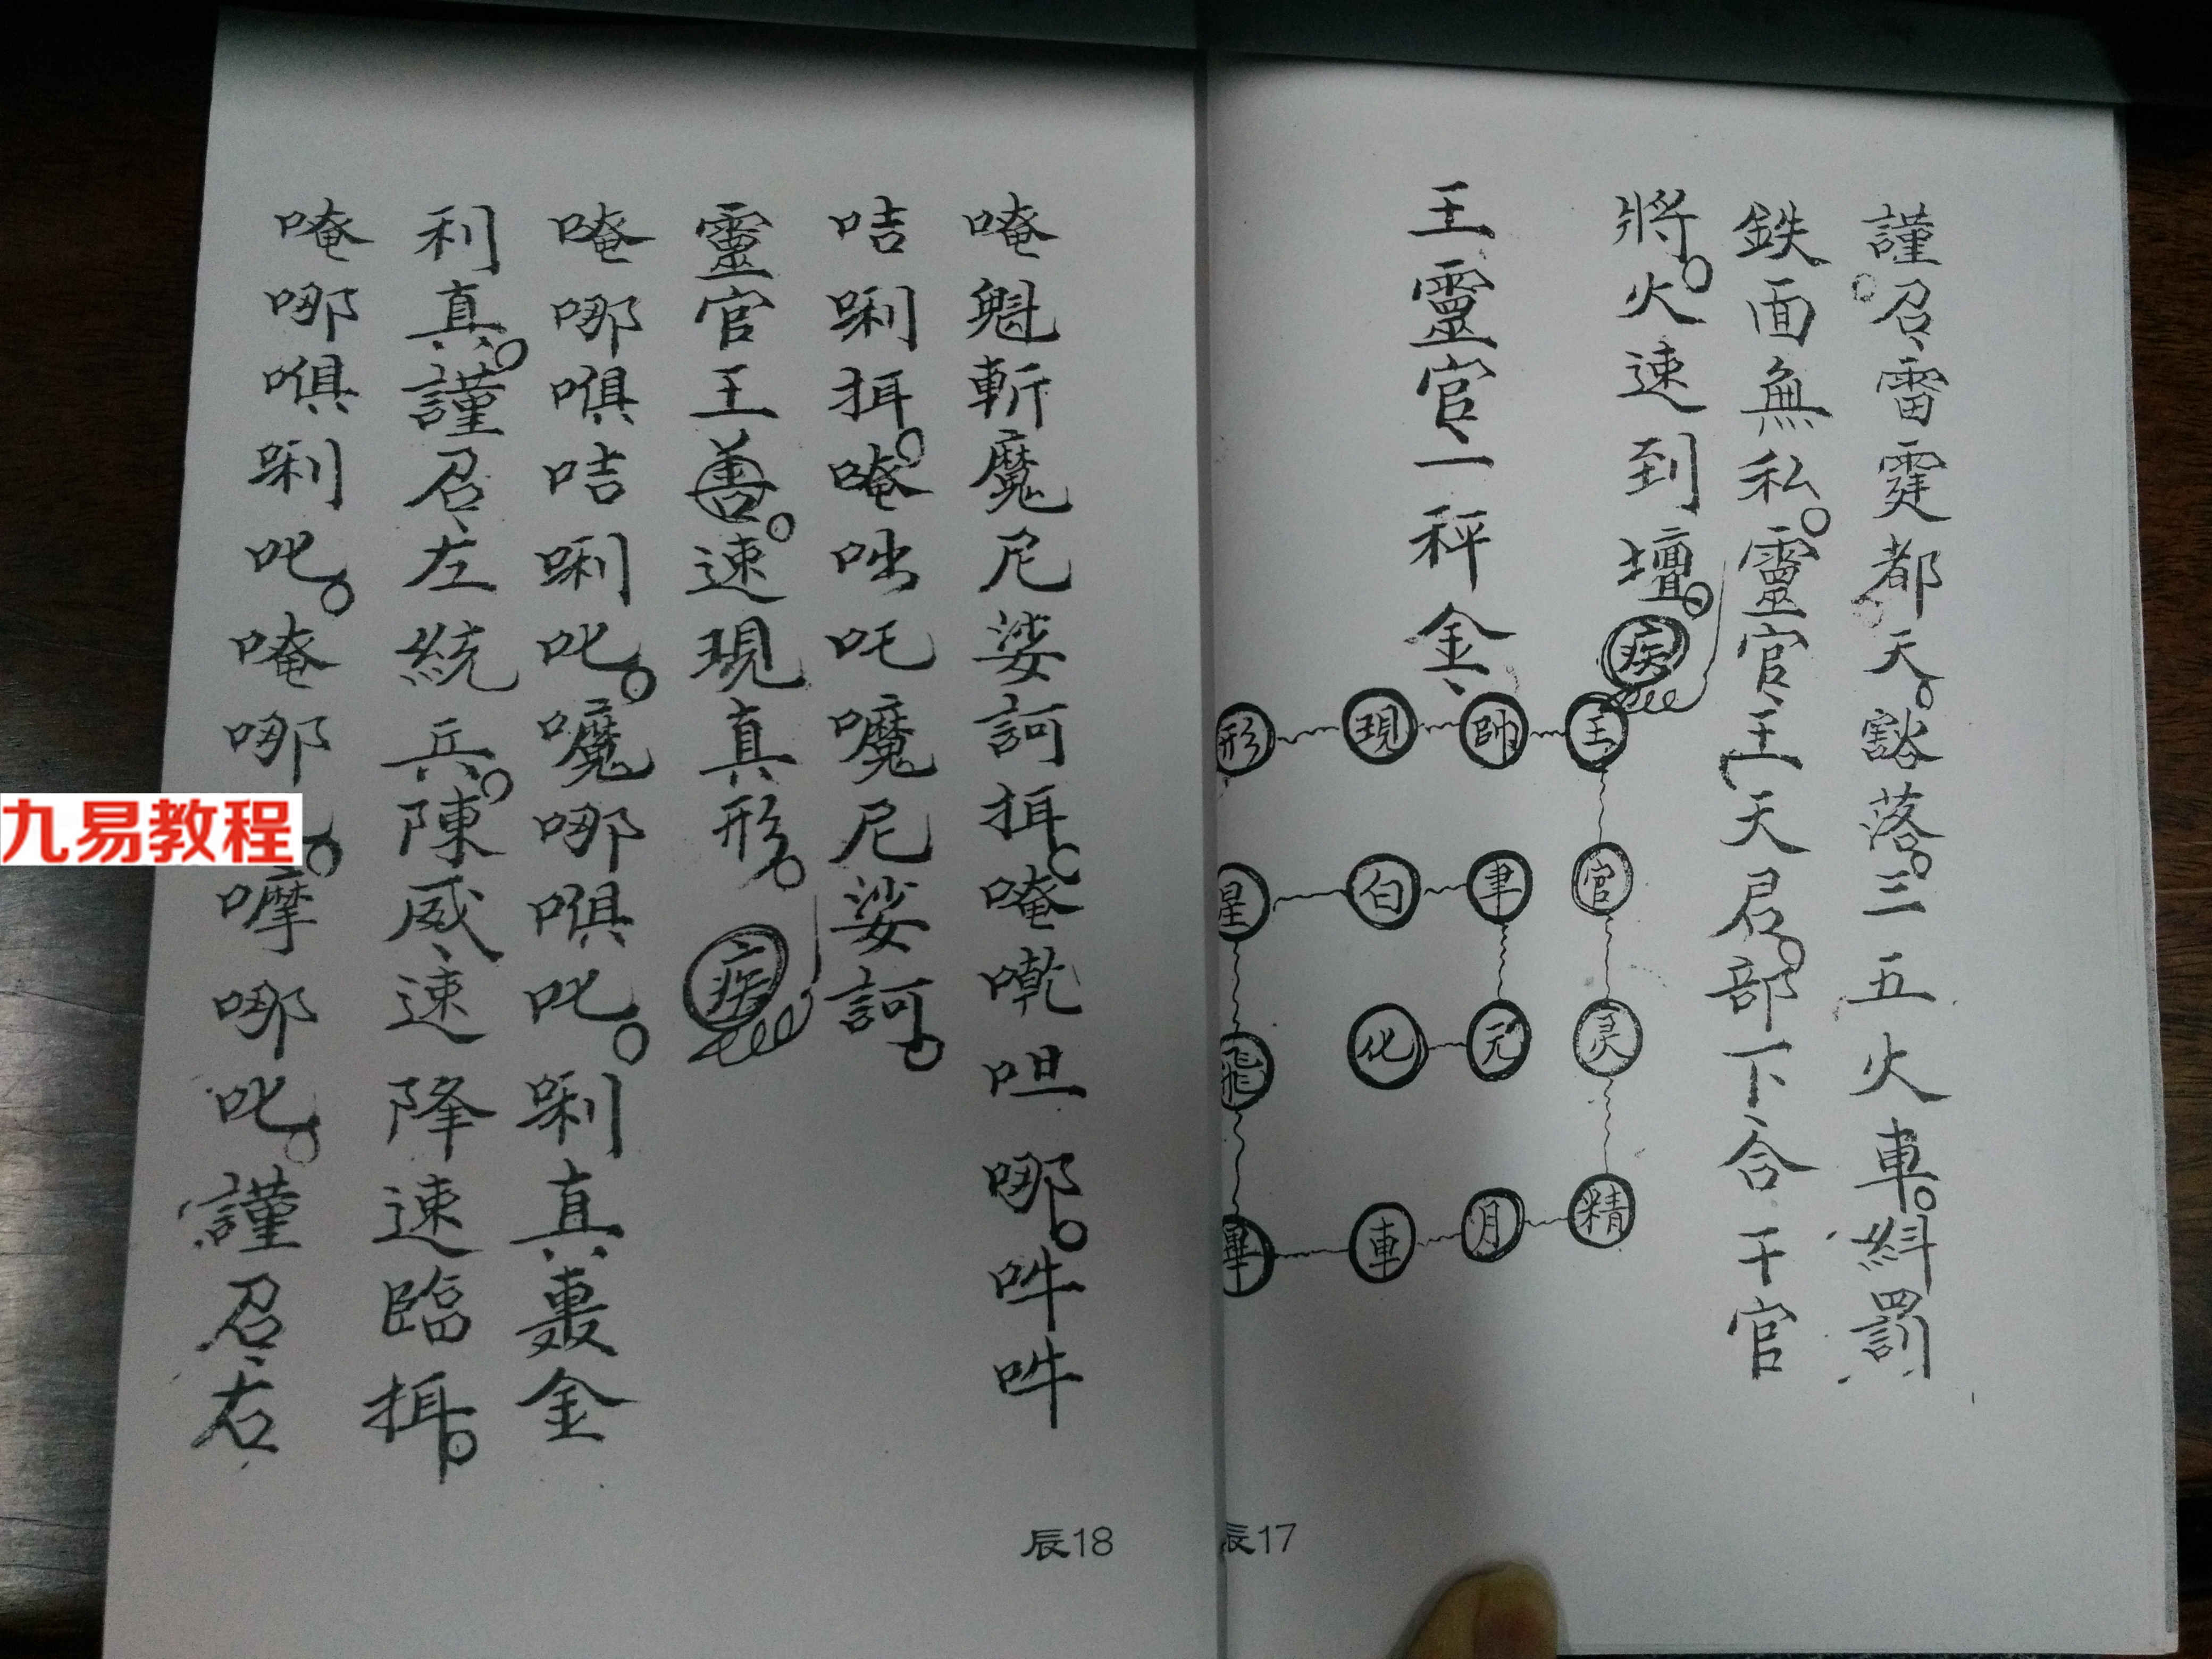 謹召雷霆都天。豁落。三五火車。糾罰
鉄面無私。靈官王天君。部下合干官
將。火速到壇。疾
王靈官一秤金
王帥現形
官聿白星
灵元化飛
精月車畢
辰17
唵魁斬魔尼娑訶挕。唵嘰呾哪。吽吽
咭唎挕。唵咄吒嚒尼娑訶。
靈官王善。速現真形。疾
唵哪唄咭唎叱。嚒哪唄叱。唎真轟金
利真。謹召左統兵。陳威速降速臨挕。
唵哪唄唎叱。唵哪。嚤哪叱。謹召右
辰18
九易教程